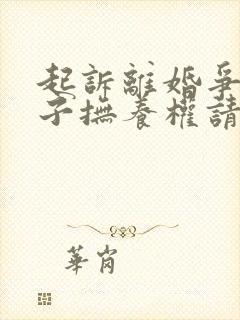 起訴離婚爭
子撫養權請
華肖